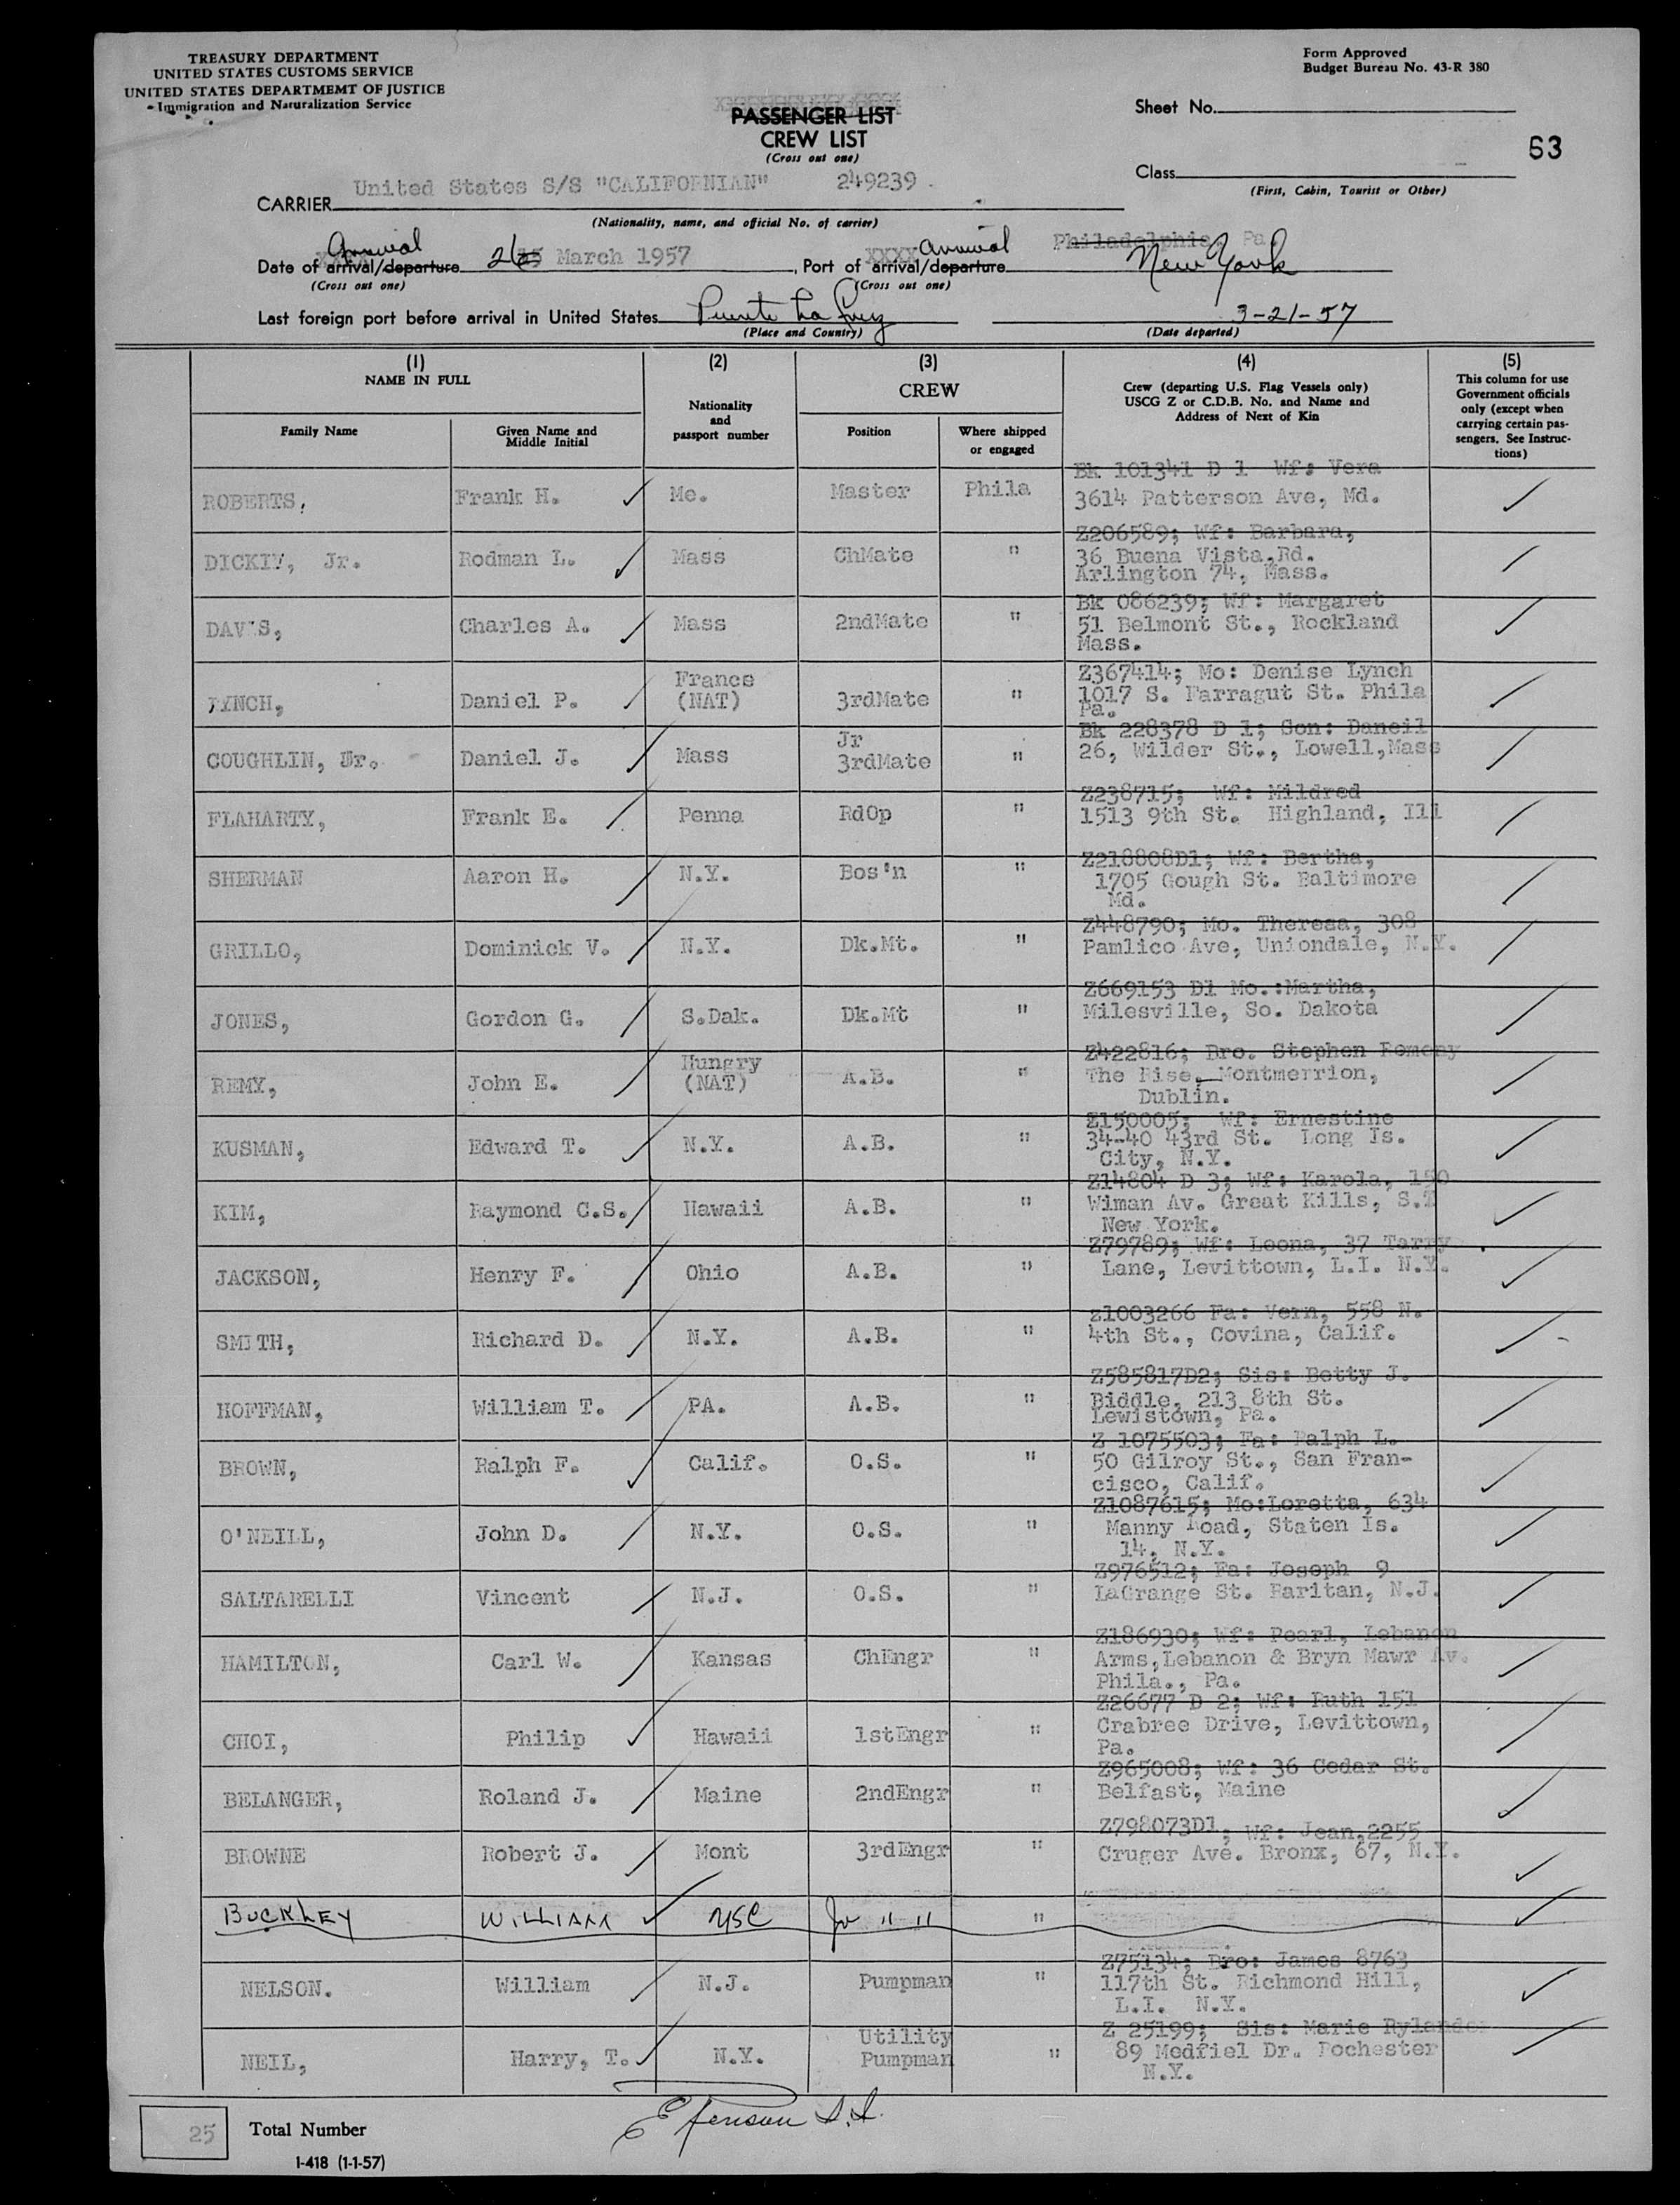 TREASURY DEPARTMENT
UNITED STATES CUSTOMS SERVICE
UNITED STATES DEPARTMEMT OF JUSTICE
Immigration and Naturalization Service
Form Approved
Budget Bureau No. 43-R 380
PASSENGER LIST
CREW LIST
(Cross out one)
Sheet No.
63
Class
(First, Cabin, Tourist or Other)
CARRIER United States S/S "CALIFORNIAN" 249239
(Nationality, name, and official No. of carrier)
Arrival Arrival Philadelphia, Pa
Date of arrival/departure 26 15 March 1957, Port of arrival/departure New York
(Cross out one) (Cross out one)
Last foreign port before arrival in United States Puerto La Cruz 3-21-57
(Place and Country) (Date departed)
(1) (2) (3) (4) (5)
NAME IN FULL
Family Name
Given Name and
Middle Initial
Nationality
and
passport number
CREW
Position
Where shipped
or engaged
Crew (departing U.S. Flag Vessels only)
USCG Z or C.D.B. No. and Name and
Address of Next of Kin
This column for use
Government officials
only (except when
carrying certain pas-
sengers. See Instruc-
tions)
Bk 101341 D 1 Wf: Vera
ROBERTS, Frank H. Me. Master Phila 3614 Patterson Ave, Md.
Z206589; Wf: Barbara,
DICKIY, Jr. Rodman L. Mass ChMate " 36 Buena Vista,Rd.
Arlington 74, Mass.
Bk 086239; Wf: Margaret
DAVIS, Charles A. Mass 2ndMate " 51 Belmont St., Rockland
Mass.
France Z367414; Mo: Denise Lynch
LYNCH, Daniel P. (NAT) 3rdMate " 1017 S. Farragut St. Phila
Pa.
Jr Bk 228378 D 1; Son: Daneil
COUGHLIN, Jr. Daniel J. Mass 3rdMate " 26, Wilder St., Lowell,Mass
Z238715; Wf: Mildred
FLAHARTY, Frank E. Penna RdOp " 1513 9th St. Highland, Ill
Z218808D1; Wf: Bertha,
SHERMAN Aaron H. N.Y. Bos'n " 1705 Gough St. Baltimore
Md.
Z448790; Mo. Theresa, 308
GRILLO, Dominick V. N.Y. Dk.Mt. " Pamlico Ave, Uniondale, N.Y.
Z669153 D1 Mo.:Martha,
JONES, Gordon G. S.Dak. Dk.Mt " Milesville, So. Dakota
Hungry Z422816; Bro. Stephen Remeny
REMY, John E. (NAT) A.B. " The Rise, Montmerrion,
Dublin.
Z150005; Wf: Ernestine
KUSMAN, Edward T. N.Y. A.B. " 34-40 43rd St. Long Is.
City, N.Y.
Z14804 D 3; Wf: Karola, 150
KIM, Raymond C.S. Hawaii A.B. " Wiman Av. Great Kills, S.I
New York.
Z79789; Wf: Leona, 37 Tarry
JACKSON, Henry F. Ohio A.B. " Lane, Levittown, L.I. N.Y.
z1003266 Fa: Vern, 558 N.
SMITH, Richard D. N.Y. A.B. " 4th St., Covina, Calif.
Z585817D2; Sis: Betty J.
HOFFMAN, William T. PA. A.B. " Biddle, 213 8th St.
Lewistown, Pa.
Z 1075503; Fa: Ralph L.
BROWN, Ralph F. Calif. O.S. " 50 Gilroy St., San Fran-
cisco, Calif.
Z1087615; Mo:Loretta, 634
O'NEILL, John D. N.Y. O.S. " Manny Road, Staten Is.
14, N.Y.
Z976512; Fa: Joseph 9
SALTARELLI Vincent N.J. O.S. " LaGrange St. Raritan, N.J.
Z186930; Wf: Pearl, Lebanon
HAMILTON, Carl W. Kansas ChEngr " Arms,Lebanon & Bryn Mawr Av.
Phila., Pa.
Z26677 D 2; Wf: Ruth 151
CHOI, Philip Hawaii 1stEngr " Crabree Drive, Levittown,
Pa.
Z965008; Wf: 36 Cedar St.
BELANGER, Roland J. Maine 2ndEngr " Belfast, Maine
Z798073D1; Wf: Jean,2255
BROWNE Robert J. Mont 3rdEngr " Cruger Ave. Bronx, 67, N.Y.
BUCKLEY WILLIAM USC Jr " " "
Z75134; Bro: James 8763
NELSON. William N.J. Pumpman " 117th St. Richmond Hill,
L.I. N.Y.
Utility Z 25199; Sis: Marie Rylander
NEIL, Harry, T. N.Y. Pumpman " 89 Medfiel Dr. Rochester
N.Y.
25 Total Number
I-418 (1-1-57)